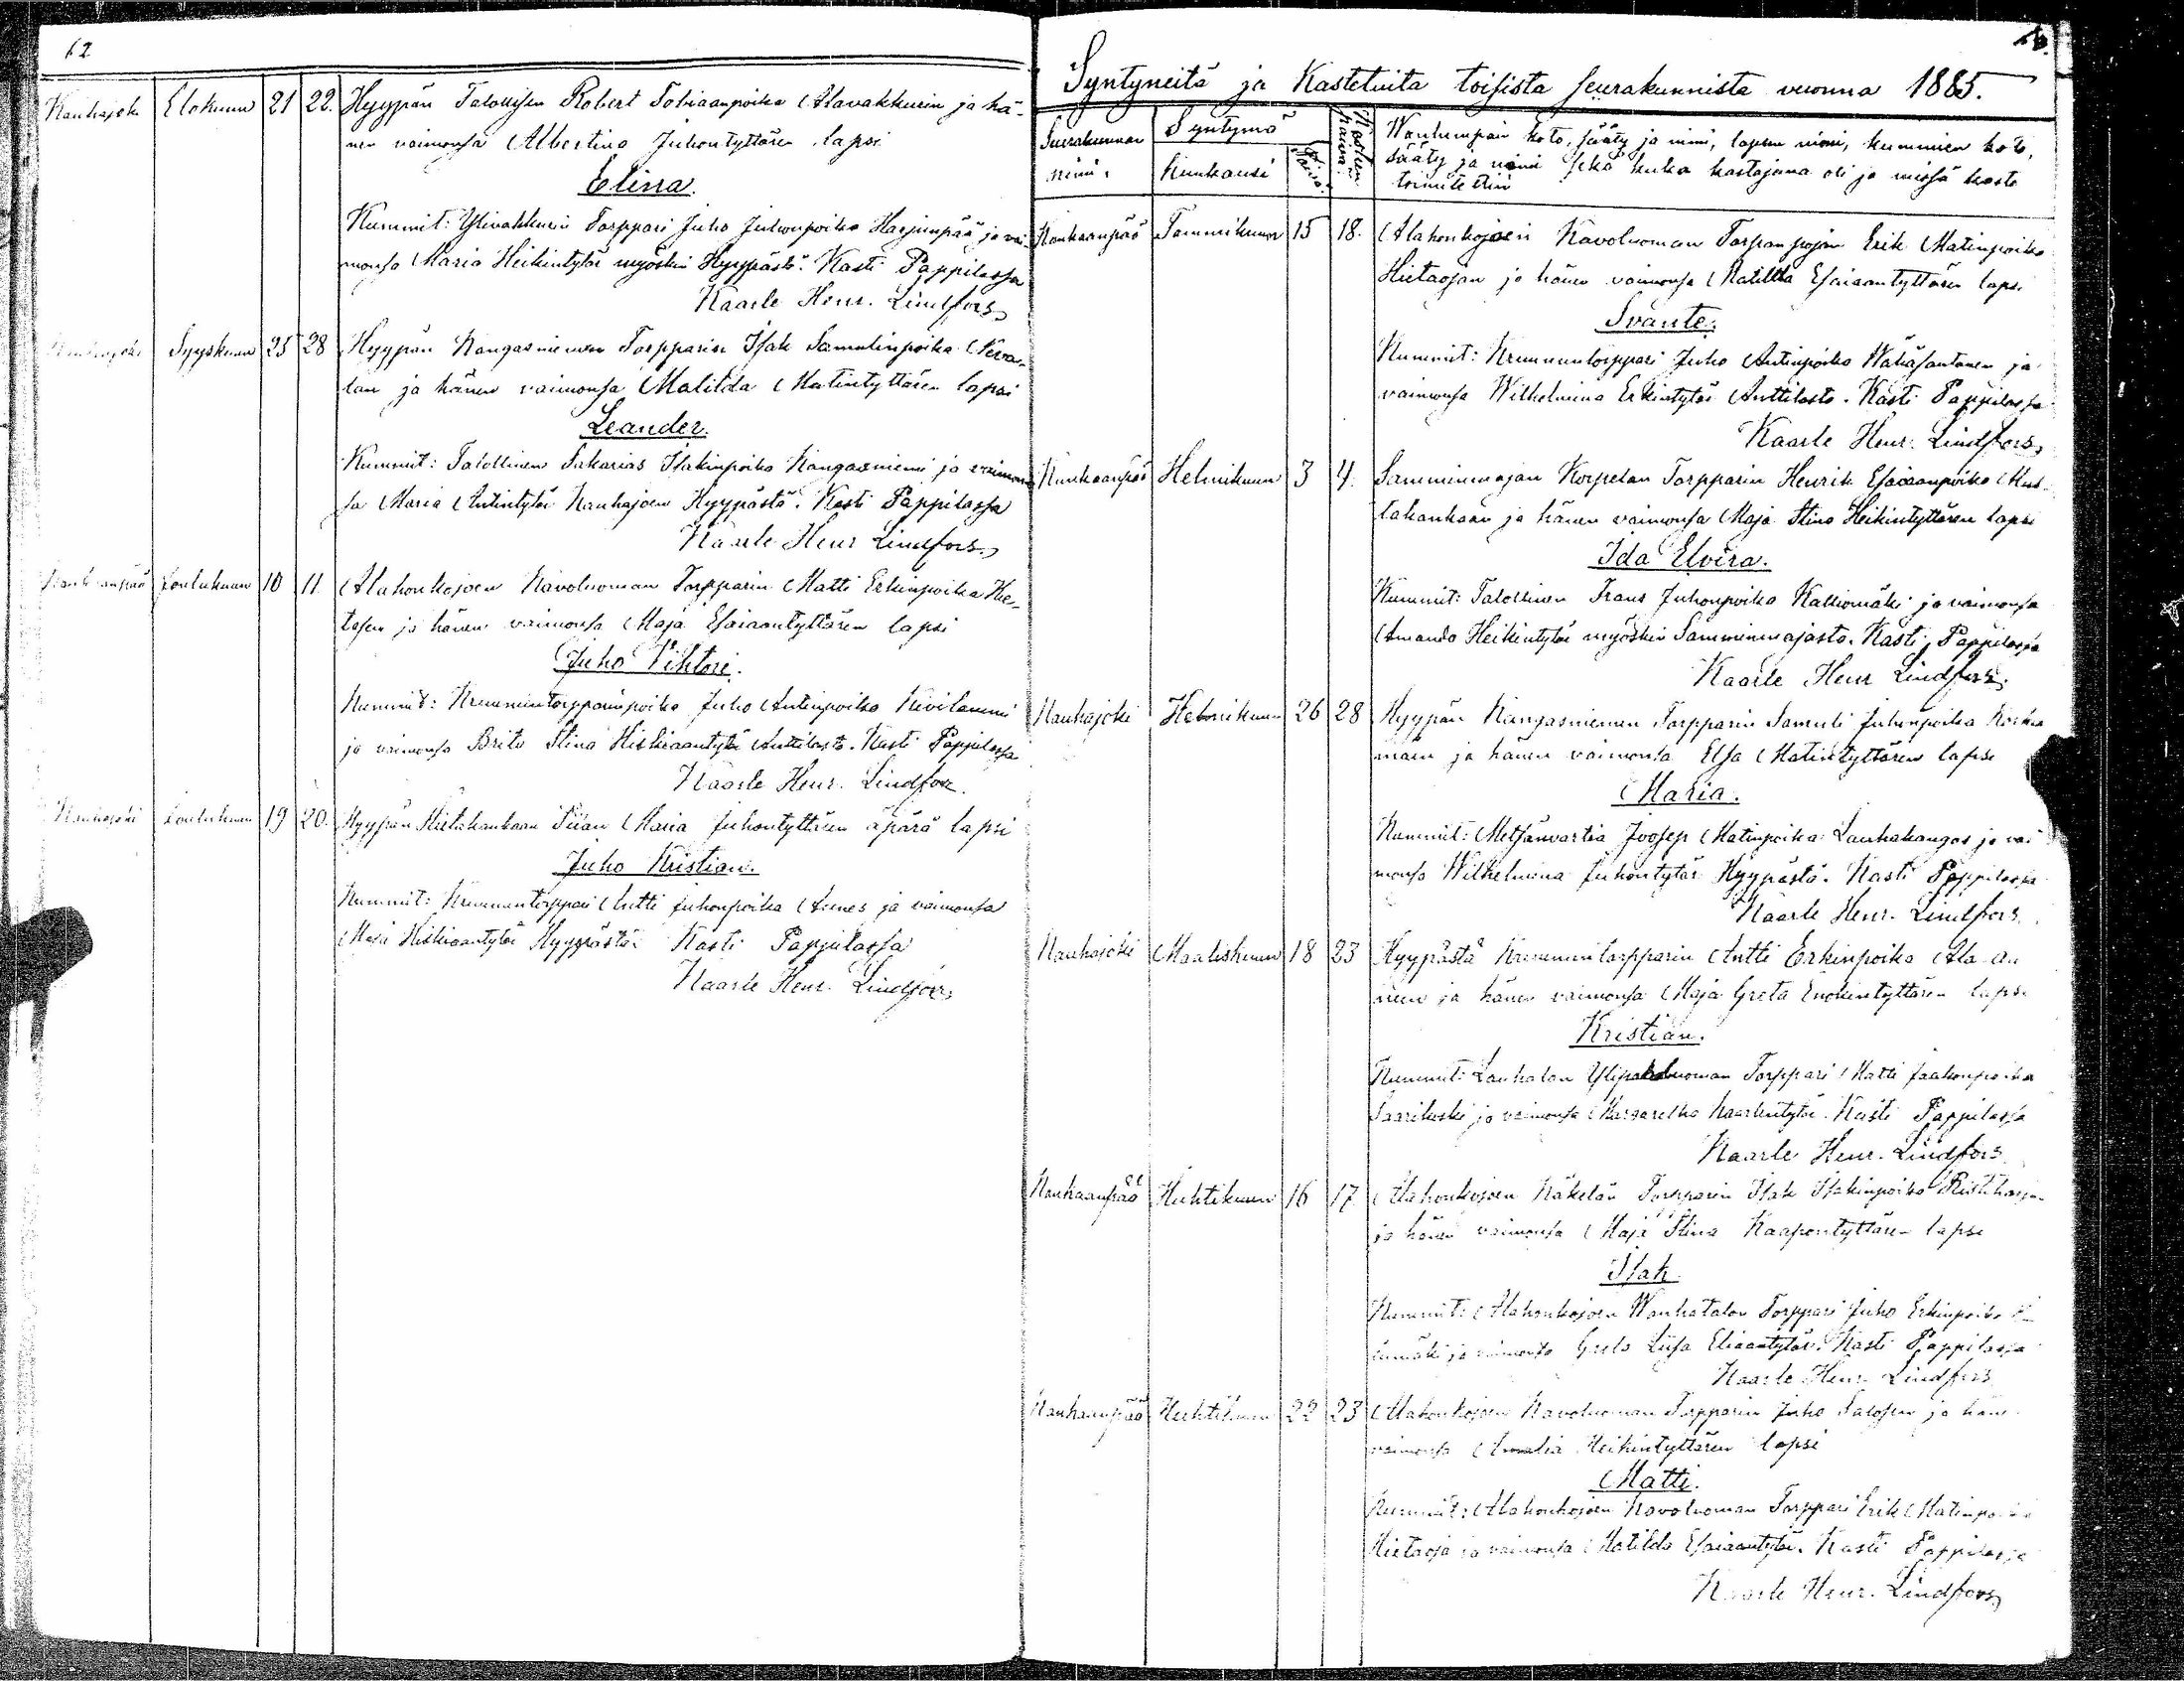 62
Kauhajoki Elokuun 21 22. Hyypän Talollisen Robert Tobiaanpoika Alavakkurin ja hä-
nen vaimonsa Albertina Juhontyttären lapsi
Elina.
Kummit: Ylivakkurin Torppari Juho Juhonpoika Harjunpää ja vai-
monsa Maria Heikintytär myöskin Hyypästä. Kasti Pappilassa
Kaarle Henr. Lindfors
Kauhajoki Syyskuun 25 28 Hyypän Kangasniemen Torpparin Isak Samulinpoika Neva-
lan ja hänen vaimonsa Matilda Matintyttären lapsi
Leander.
Kummit: Talollinen Sakarias Isakinpoika Kangasniemi ja vaimon-
sa Maria Antintytär Kauhajoen Hyypästä. Kasti Pappilassa
Kaarle Henr Lindfors
Kankaanpää Joulukuun 10 11 Alahonkajoen Kavoluoman Torpparin Matti Erkinpoika Hie-
ja hänen vaimonsa Maja Esaiaantyttären lapsi
Juho Vihtori.
Kummit: Kruununtorpparinpoika Juho Antinpoika Kivilammi
ja vaimonsa Brita Stina Hiskiaantytär Anttilasta. Kasti Pappilassa
Kaarle Henr. Lindfors.
Kauhajoki Joulukuun 19 20. Hyypän Hietakankaan Piian Maria Juhontyttären äpärä lapsi
Juho Kristian.
Kummit: Kruununtorppari Antti Juhonpoika ja vaimonsa
Maja Hiskiaantytär Hyypästä. Kasti Pappilassa
Kaarle Henr. Lindfors
Syntyneitä ja Kastetuita toisista seurakunnista vuonna 1885.
Seurakunnan nimi. Syntymä Kuukausi Päivä. Kasteen päivä. Wanhempain koto, sääty ja nimi, lapsen nimi, kummien koto,
sääty ja nimi sekä kuka kastajana oli ja missä kaste
toimitettiin
Kankaanpää Tammikuun 15 18. Alahonkajoen Kavoluoman Torpanpojan Erik Matinpoika
Hietaojan ja hänen vaimonsa Matilda Esaiaantyttären lapsi
Svante.
Kummit: Kruununtorppari Juho Antinpoika Wähäsantanen ja
vaimonsa Wilhelmina Erkintytär Anttilasta. Kasti Pappilassa
Kaarle Henr. Lindfors
Kankaanpää Helmikuun 3 4. Samminmajan Korpelan Torpparin Henrik Esaiaanpoika
ja hänen vaimonsa Maja Stina Heikintyttären lapsi
Ida Elvira.
Kummit: Talollinen Frans Juhonpoika Kalliomäki ja vaimonsa
Amanda Heikintytär myöskin Samminmajasta. Kasti Pappilassa
Kaarle Henr Lindfors
Kauhajoki Helmikuun 26 28 Hyypän Kangasniemen Torpparin Samuli Juhonpoika
ja hänen vaimonsa Elsa Matintyttären lapsi
Maria.
Kummit: Metsänvartia Joosep Matinpoika Lauhakangas ja vai-
monsa Wilhelmina Juhontytär Hyypästä. Kasti Pappilassa
Kaarle Henr. Lindfors
Kauhajoki Maaliskuun 18 23 Hyypästä Kruununtorpparin Antti Erkinpoika
ja hänen vaimonsa Maja Greta Enokintyttären lapsi
Kristian.
Kummit: Lauhalan Torppari Matti Jaakonpoika
Saarikoski ja vaimonsa Margaretha Kaarlentytär. Kasti Pappilassa
Kaarle Henr. Lindfors
Kankaanpää Huhtikuun 16 17 Alahonkajoen Käkelän Torpparin Isak Isakinpoika
ja hänen vaimonsa Maja Stina Kaapontyttären lapsi
Isak
Kummit: Alahonkajoen Wanhatalon Torppari Juho Erkinpoika
ja vaimonsa Greta Liisa Eliaantytär. Kasti Pappilassa
Kaarle Henr. Lindfors
Kankaanpää Huhtikuun 22 23 Alahonkajoen Kavoluoman Torpparin Juho Salosen ja hänen
vaimonsa Amalia Heikintyttären lapsi
Matti.
Kummit: Alahonkajoen Kavoluoman Torppari Erik Matinpoika
Hietaoja ja vaimonsa Matilda Esaiaantytär. Kasti Pappilassa
Kaarle Henr. Lindfors